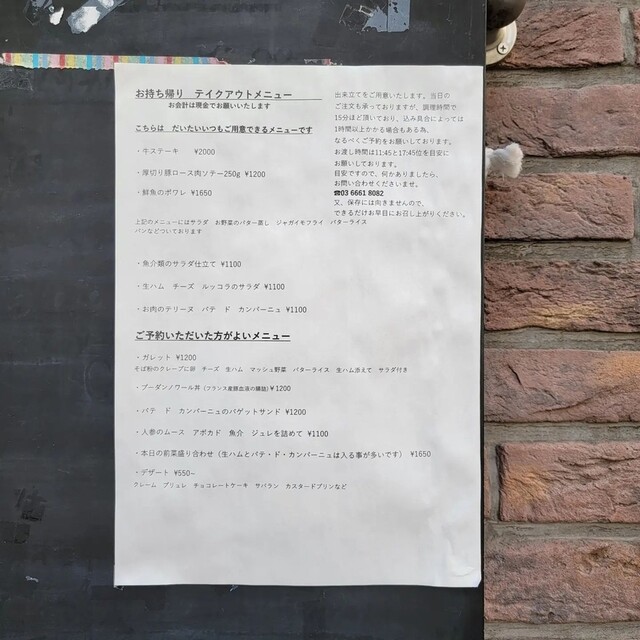 お持ち帰り　テイクアウトメニュー
お会計は現金でお願いいたします
こちらは　だいたいいつもご用意できるメニューです
・牛ステーキ　¥2000
・厚切り豚ロース肉ソテー250g ¥1200
・鮮魚のポワレ ¥1650
上記のメニューにはサラダ　お野菜のバター蒸し　ジャガイモフライ　バターライス
パンなどついております
・魚介類のサラダ仕立て ¥1100
・生ハム　チーズ　ルッコラのサラダ ¥1100
・お肉のテリーヌ　パテ　ド　カンパーニュ ¥1100
ご予約いただいた方がよいメニュー
・ガレット ¥1200
そば粉のクレープに卵　チーズ　生ハム　マッシュ野菜　バターライス　生ハム添えて　サラダ付き
・ブーダンノワール丼 (フランス産豚血液の腸詰) ¥1200
・パテ　ド　カンパーニュのバゲットサンド ¥1200
・人参のムース　アボカド　魚介　ジュレを詰めて ¥1100
・本日の前菜盛り合わせ（生ハムとパテ・ド・カンパーニュは入る事が多いです） ¥1650
・デザート ¥550~
クレーム　ブリュレ　チョコレートケーキ　サバラン　カスタードプリンなど
出来立てをご用意いたします。当日の
ご注文も承っておりますが、調理時間で
15分ほど頂いており、込み具合によっては
1時間以上かかる場合もある為、
なるべくご予約をお願いしております。
お渡し時間は11:45と17:45位を目安に
お願いしております。
目安ですので、何かありましたら、
お問い合わせくださいませ。
☎03 6661 8082
又、保存には向きませんので、
できるだけお早目にお召し上がりください。